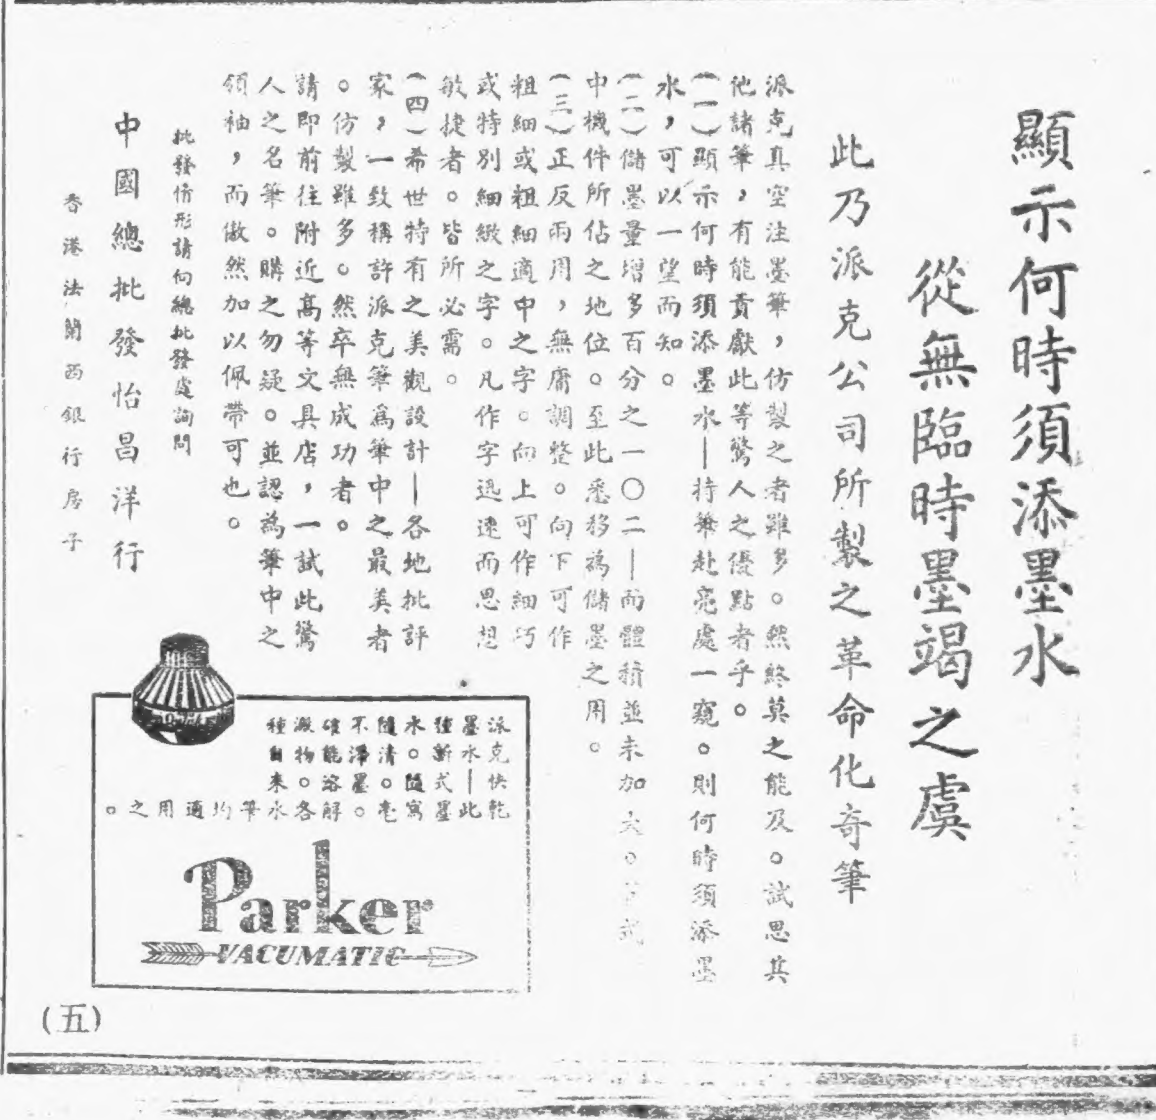 顯示何時須添墨水
從無臨時墨竭之虞
此乃派克公司所製之革命化奇筆
派克真空注墨筆，仿製之者雖多。然終莫之能及。試思其
他諸筆，有能貢獻此等驚人之優點者乎。
(一)顯示何時須添墨水—持筆赴亮處一窺。則何時須添墨
水，可以一望而知。
(二)儲墨量增多百分之一〇二—而體積並未加大。式
中機件所佔之地位。至此悉移為儲墨之用。
(三)正反兩用，無庸調整。向下可作
粗細或粗細適中之字。向上可作細巧
或特別細緻之字。凡作字迅速而思想
敏捷者。皆所必需。
(四)希世特有之美觀設計—各地批評
家，一致稱許派克筆爲筆中之最美者
。仿製雖多。然卒無成功者。
請即前往附近高等文具店，一試此驚
人之名筆。購之勿疑。並認為筆中之
領袖，而傲然加以佩帶可也。
批發情形請向總批發處詢問
中國總批發怡昌洋行
香港法蘭西銀行房子
派克快乾
墨水—此
種新式墨
水。隨寫
隨清。毫
不滯墨。
確能溶解
澱物。各
種自來水
筆均適用之。
Parker
VACUMATIC
(五)